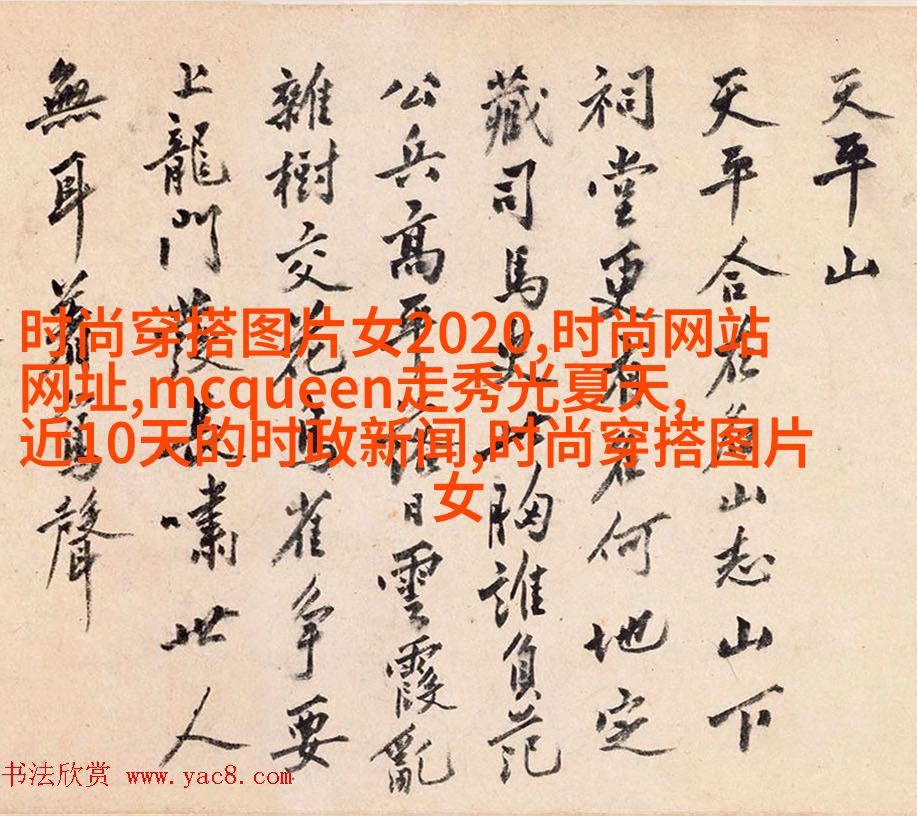 天平山
天平合在山志山下
祠堂更有何地定
藏司馬胸誰負范
公兵高平落日雲霞亂
雜樹交花鳥雀争要
上龍門發長嘯世人
無耳聲
时尚穿搭图片女2020,时尚网站
网址,mcqueen走秀光夏天,
近10天的时政新闻,时尚穿搭图片
女
书法欣赏 www.yac8.com